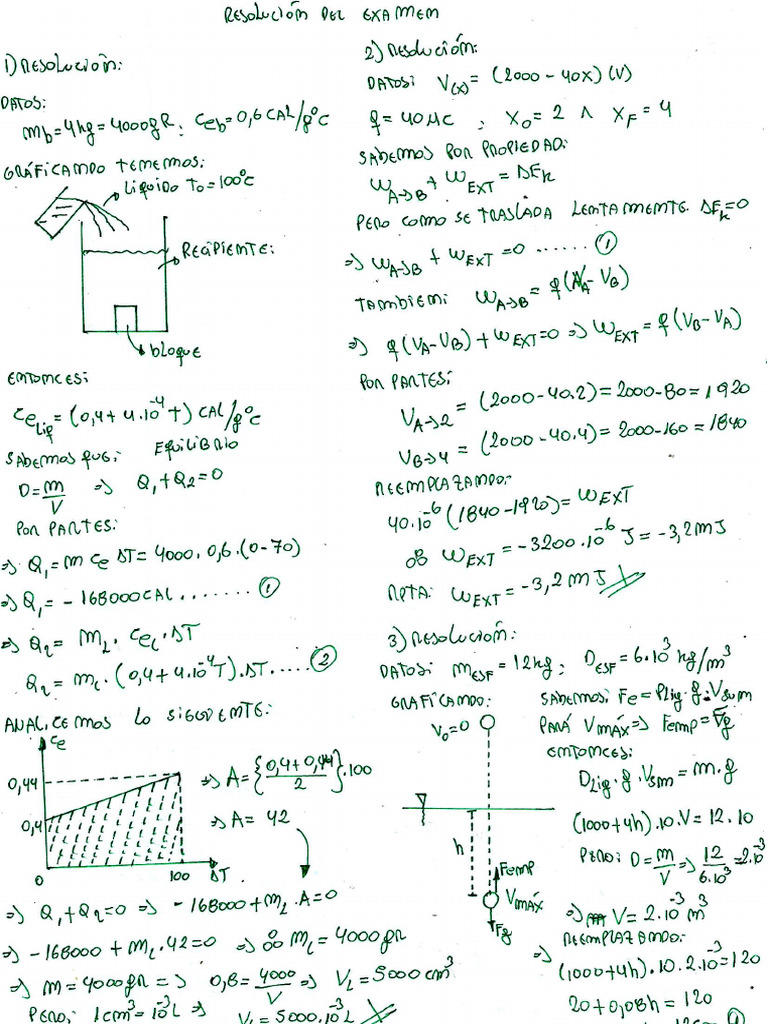 RESOLUCIÓN DEL EXAMEN
1) RESOLUCIÓN:
DATOS:
m_b = 4kg = 4000gR ; Ce_b = 0,6 CAL/g°C
GRÁFICANDO TENEMOS:
LIQUIDO T0 = 100°C
RECIPIENTE:
bloque
ENTONCES:
Ce_liq = (0,4 + 4.10^-4 T) CAL/g°C
SABEMOS QUE: EQUILIBRIO
D = m/V ⇒ Q1 + Q2 = 0
POR PARTES:
⇒ Q1 = m Ce ΔT = 4000. 0,6. (0-70)
⇒ Q1 = -168000 CAL ........ ①
⇒ Q2 = M_L . Ce_L . ΔT
Q2 = m_L . (0,4 + 4.10^-4 T) . ΔT ..... ②
ANALICEMOS LO SIGUIENTE:
Ce
0,44
0,4
0
100
ΔT
⇒ A = {(0,4 + 0,44)/2} . 100
⇒ A = 42
⇒ Q1 + Q2 = 0 ⇒ -168000 + M_L . A = 0
⇒ -168000 + M_L . 42 = 0 ⇒ ∴ M_L = 4000gR
⇒ m = 4000gR ⇒ 0,8 = 4000/V ⇒ V_L = 5000 cm^3
PERO: 1cm^3 = 10^-3 L ⇒ V_L = 5000.10^-3 L
2) RESOLUCIÓN:
DATOS: V(x) = (2000 - 40X) (V)
q = 40 μC ; X0 = 2 ∧ XF = 4
SABEMOS POR PROPIEDAD:
W_A→B + W_EXT = ΔE_k
PERO COMO SE TRASLADA LENTAMENTE ΔE_k = 0
⇒ W_A→B + W_EXT = 0 ...... ①
TAMBIEN: W_A→B = q(V_A - V_B)
⇒ q(V_A - V_B) + W_EXT = 0 ⇒ W_EXT = q(V_B - V_A)
POR PARTES:
V_A→2 = (2000 - 40.2) = 2000 - 80 = 1920
V_B→4 = (2000 - 40.4) = 2000 - 160 = 1840
REEMPLAZANDO:
40.10^-6 (1840 - 1920) = W_EXT
∴ W_EXT = -3200.10^-6 J = -3,2 mJ
RPTA: W_EXT = -3,2 mJ
3) RESOLUCIÓN:
DATOS: M_ESF = 12kg ; D_ESF = 6.10^3 kg/m^3
GRAFICANDO:
V0 = 0
h
Femp
Vmáx
Fg
SABEMOS: Fe = ρliq . g . Vsum
PARÁ Vmáx ⇒ Femp = Fg
ENTONCES:
Dliq . g . Vsm = m . g
(1000 + 4h) . 10 . V = 12 . 10
PERO: D = m/V ⇒ 12/6.10^3 = 2.10^-3
⇒ V = 2.10^-3 m^3
REEMPLAZANDO:
⇒ (1000 + 4h) . 10 . 2.10^-3 = 120
20 + 0,08h = 120